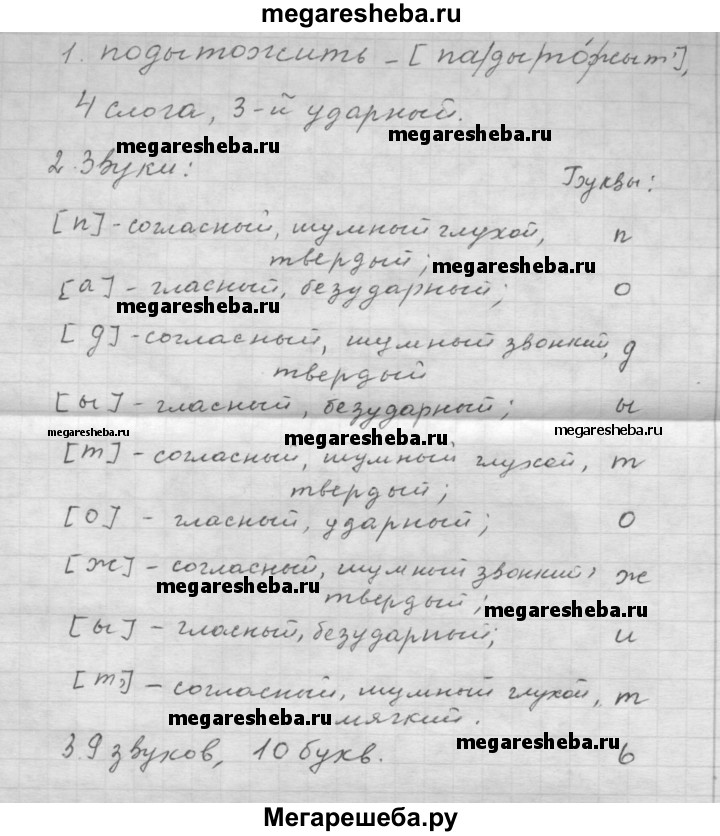 megaresheba.ru
1. подытожить – [па/ды/то́/жыт'],
4 слога, 3-й ударный.
megaresheba.ru
megaresheba.ru
2. Звуки: Буквы:
[п] - согласный, шумный глухой, п
твердый;
megaresheba.ru
[а] - гласный, безударный; о
megaresheba.ru
[д] - согласный, шумный звонкий, д
твердый
[ы] - гласный, безударный; ы
megaresheba.ru megaresheba.ru megaresheba.ru
[т] - согласный, шумный глухой, т
твердый;
[о] - гласный, ударный; о
[ж] - согласный, шумный звонкий, ж
megaresheba.ru
твердый;
megaresheba.ru
[ы] - гласный, безударный; и
[т'] - согласный, шумный глухой, т
megaresheba.ru
мягкий.
megaresheba.ru
3. 9 звуков, 10 букв. ь
Мегарешеба.ру